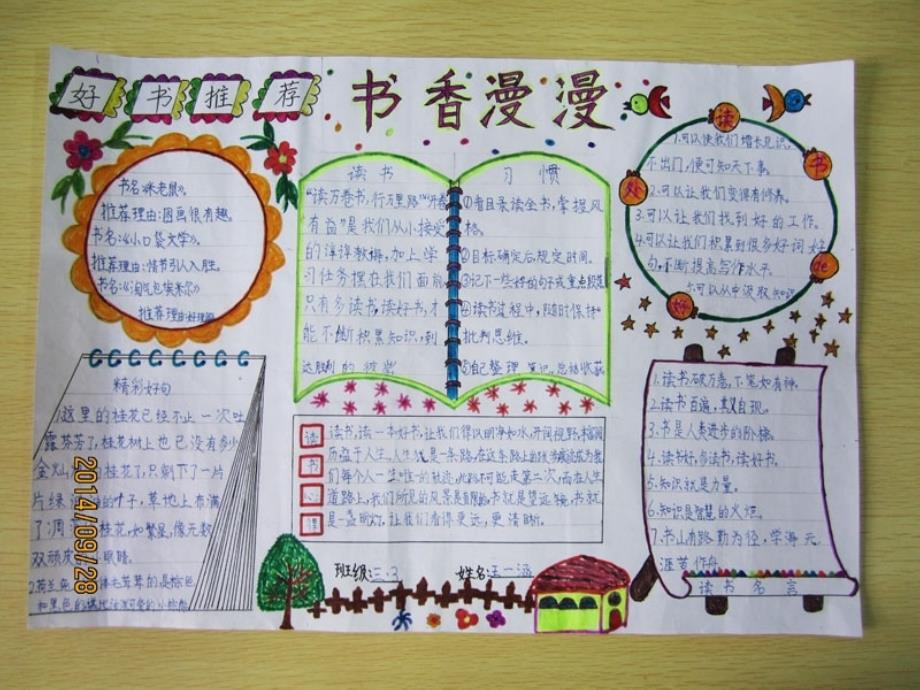 好书推荐
书香漫漫
书名《米老鼠》。
推荐理由:图画很有趣。
书名:《小口袋大学》。
推荐理由:情节引人入胜。
书名:《淘气包埃米尔》
推荐理由:好理解
读书
"读万卷书,行万里路""开卷
有益"是我们从小接受
的谆谆教诲,加上学
习任务摆在我们面前,
只有多读书,读好书,才
能不断积累知识,到
达胜利的彼岸
习惯
①看目录读全书,掌握风
格。
②目标确定后规定时间。
③记下一些好的句子或重点段落
④读书过程中,随时保持
批判思维。
⑤自己整理笔记,总结收获
读书的好处
1.可以使我们增长见识。
不出门,便可知天下事。
2.可以让我们变得有修养。
3.可以让我们找到好的工作。
4.可以让我们积累到很多好词好
句,不断提高写作水平。
5.可以从中汲取知识
精彩好句
1.这里的桂花已经不止一次吐
露芬芳了,桂花树上也已没有多少
金灿
桂花了,只剩下了一片
片绿
的叶子,草地上布满
了凋
桂花,如繁星,像无数
双顽皮
眼睛。
读书心得
读书,读一本好书,让我们得以明净如水,开阔视野,
道路上,我们所见的风景是有限的。书就是望远镜,书就
是一盏明灯,让我们看得更远,更清晰。
1.读书破万卷,下笔如有神。
2.读书百遍,其义自现。
3.书是人类进步的阶梯。
4.读书好,多读书,读好书。
5.知识就是力量。
6.知识是智慧的火炬。
7.书山有路勤为径,学海无
涯苦作舟
读书名言
班级:三.3 姓名:王一涵
2014/09/28